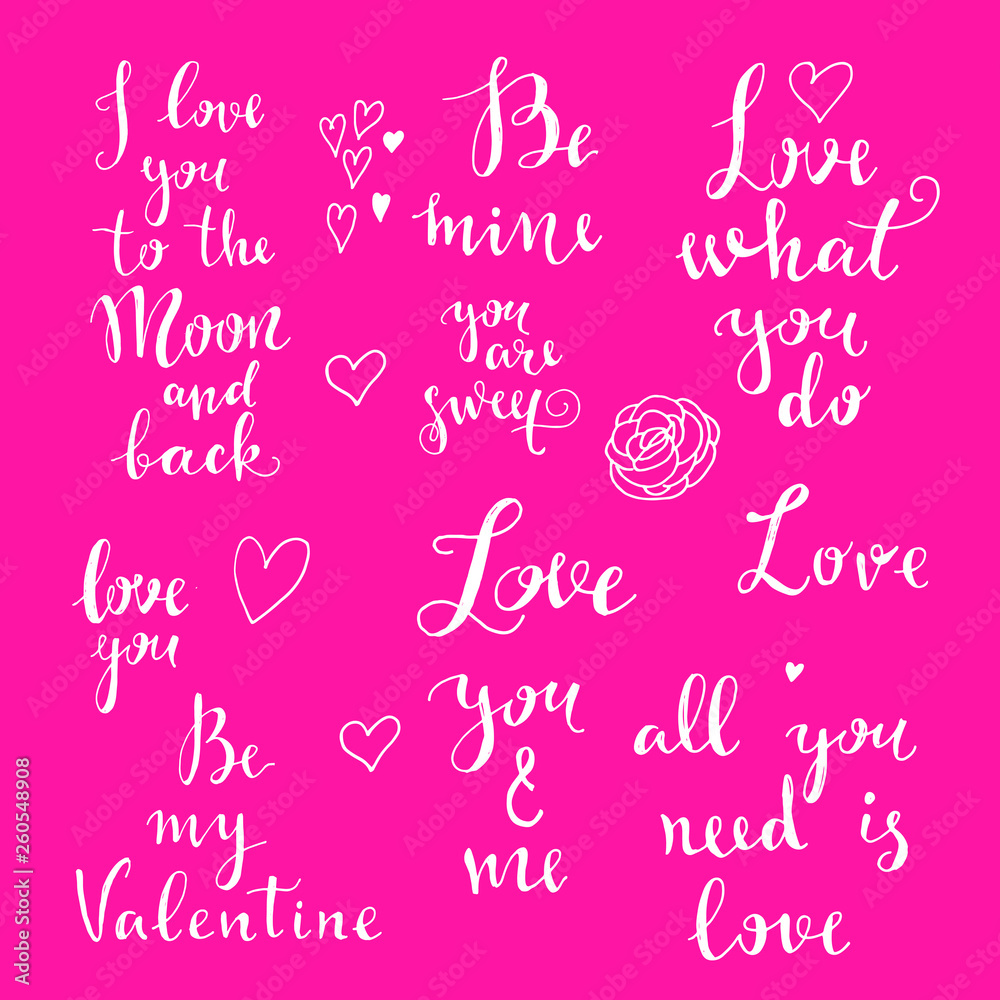 I love
you
to the
Moon
and
back
Be
mine
Love
what
you
do
you
are
sweet
love
you
Love
Love
you
&
me
Be
my
Valentine
all you
need is
love
Adobe Stock | #260548908